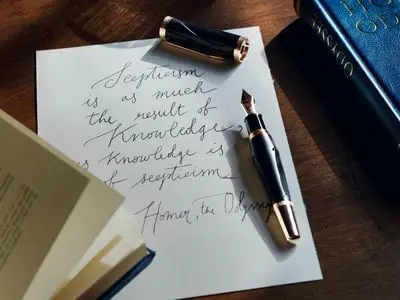 Scepticism
is as much
the result of
Knowledge,
as Knowledge is
of scepticism
Homer, the Odyssey